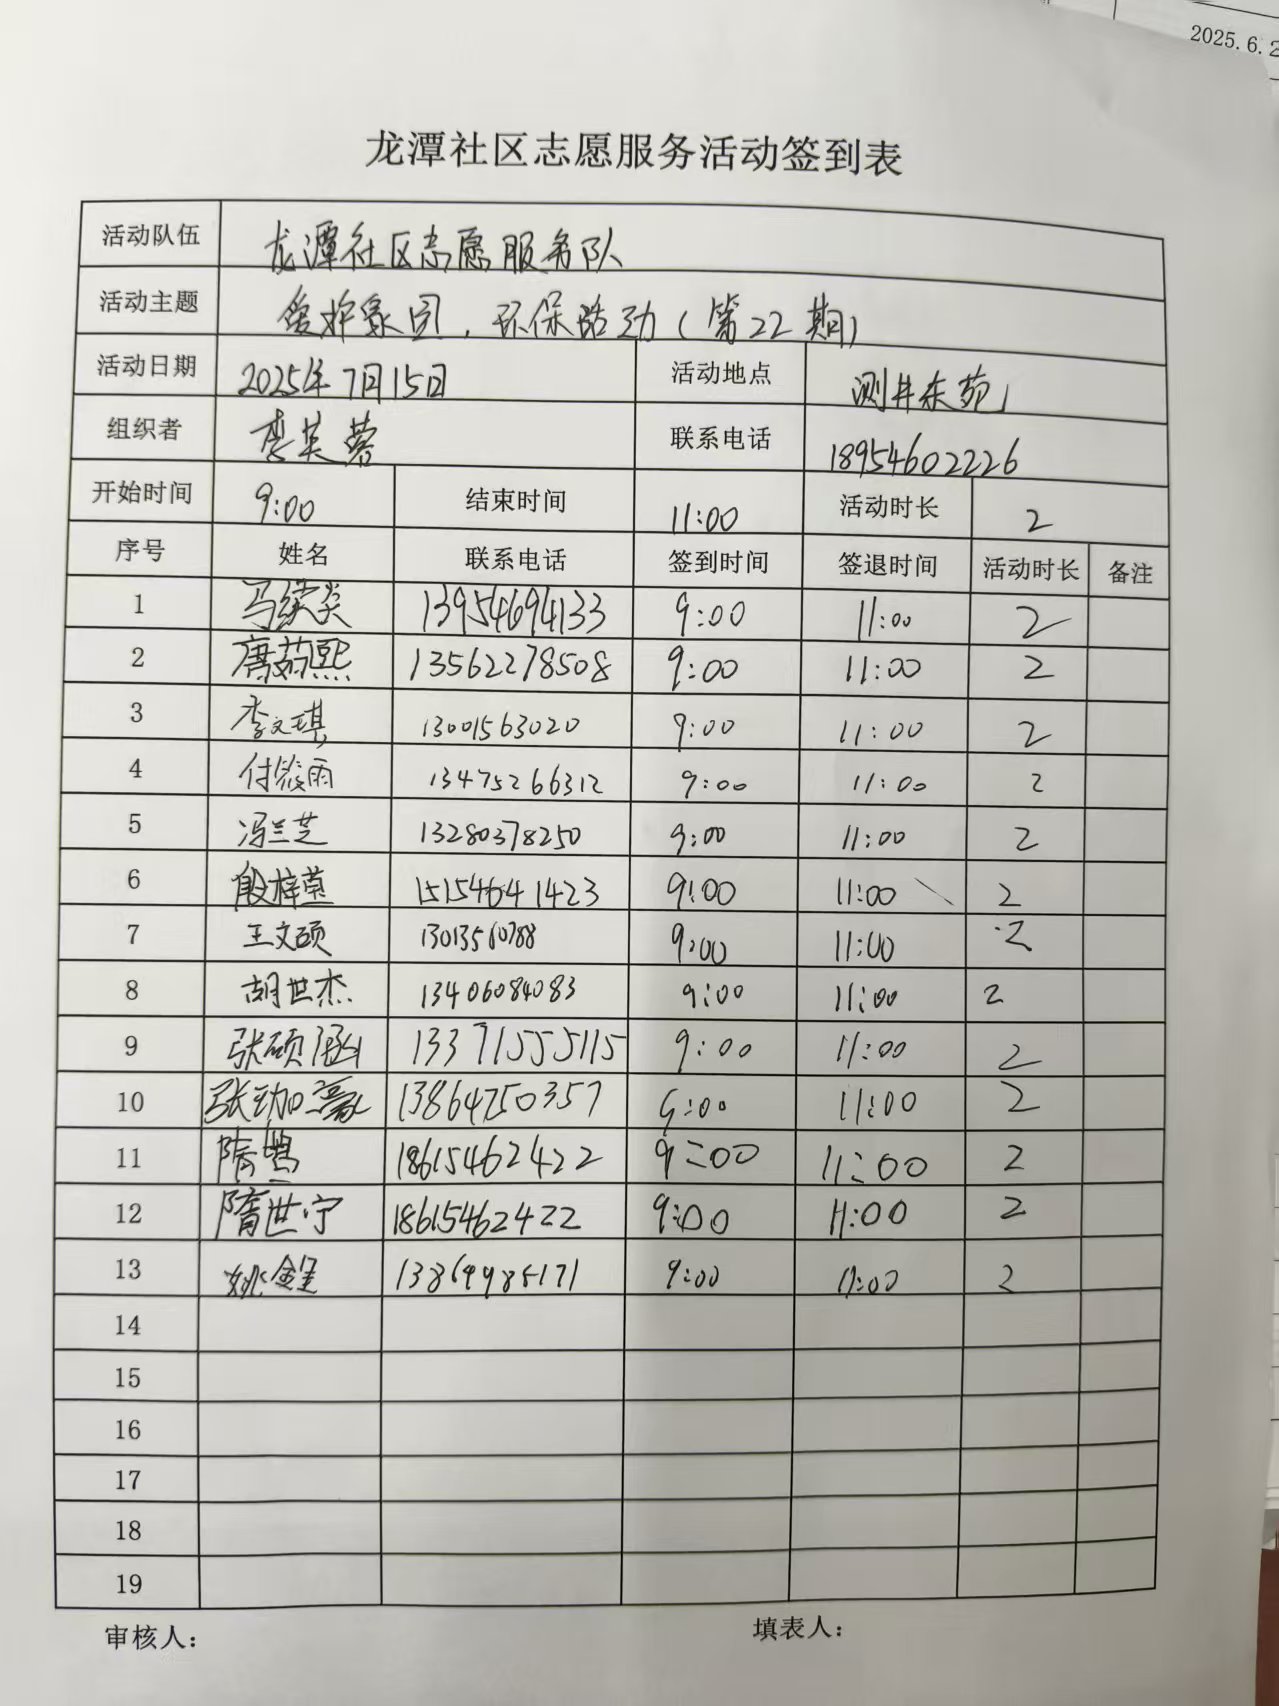 2025.6.2
龙潭社区志愿服务活动签到表
活动队伍 龙潭社区志愿服务队
活动主题 爱护家园，环保活动（第22期）
活动日期 2025年7月15日 活动地点 测井东苑
组织者 李芙蓉 联系电话 18954602226
开始时间 9:00 结束时间 11:00 活动时长 2
序号 姓名 联系电话 签到时间 签退时间 活动时长 备注
1 13954694133 9:00 11:00 2
2 13562278508 9:00 11:00 2
3 李文琪 13001563020 9:00 11:00 2
4 付筱雨 13475266312 9:00 11:00 2
5 冯兰芝 13280378250 9:00 11:00 2
6 殷梓萱 15154641423 9:00 11:00 2
7 王文硕 9:00 11:00 2
8 胡世杰 13406084083 9:00 11:00 2
9 张硕涵 13371555115 9:00 11:00 2
10 张勋豪 13864750357 9:00 11:00 2
11 18615462422 9:00 11:00 2
12 隋世宁 18615462422 9:00 11:00 2
13 9:00 11:00 2
14
15
16
17
18
19
审核人： 填表人：